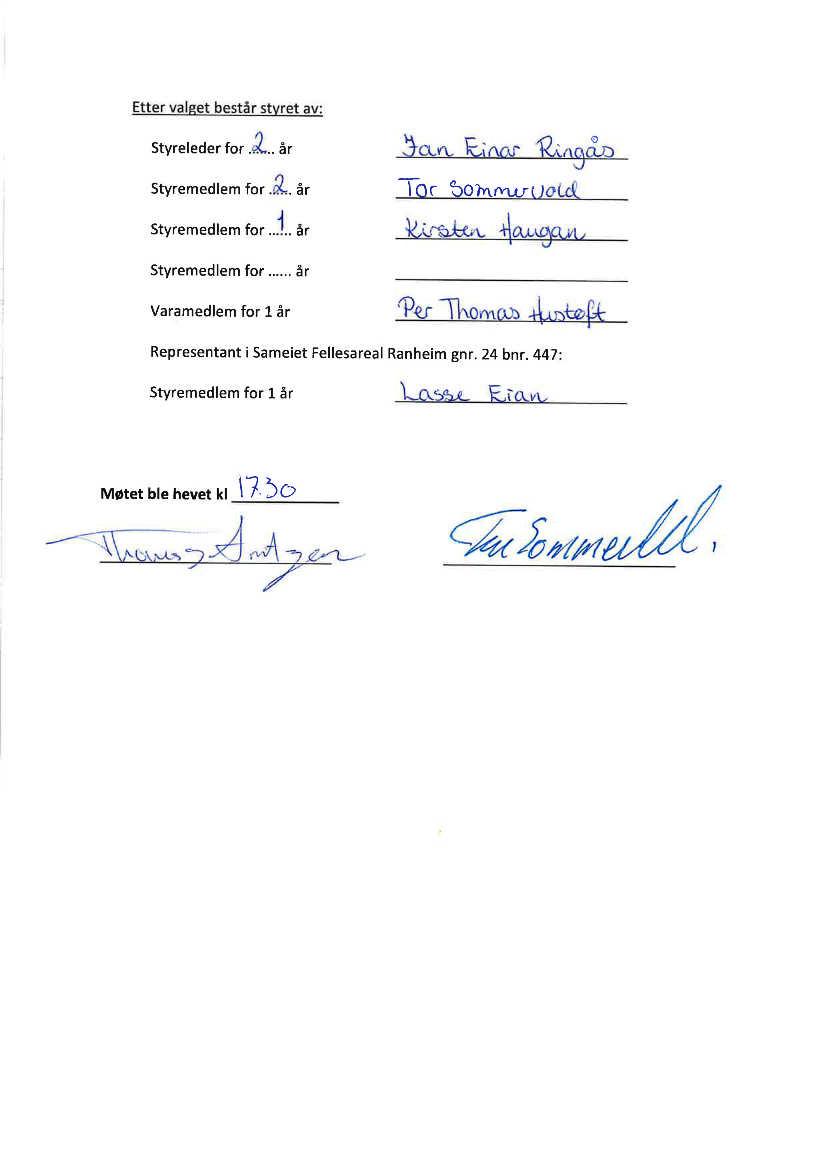 Etter valget består styret av:
Styreleder for .2... år Jan Einar Ringås
Styremedlem for .2.. år Tor Sommervold
Styremedlem for ...1.. år Kirsten Haugan
Styremedlem for ...... år
Varamedlem for 1 år Per Thomas Hustoft
Representant i Sameiet Fellesareal Ranheim gnr. 24 bnr. 447:
Styremedlem for 1 år Lasse Eian
Møtet ble hevet kl 17.30
Thomas Arntzen Tor Sommervold